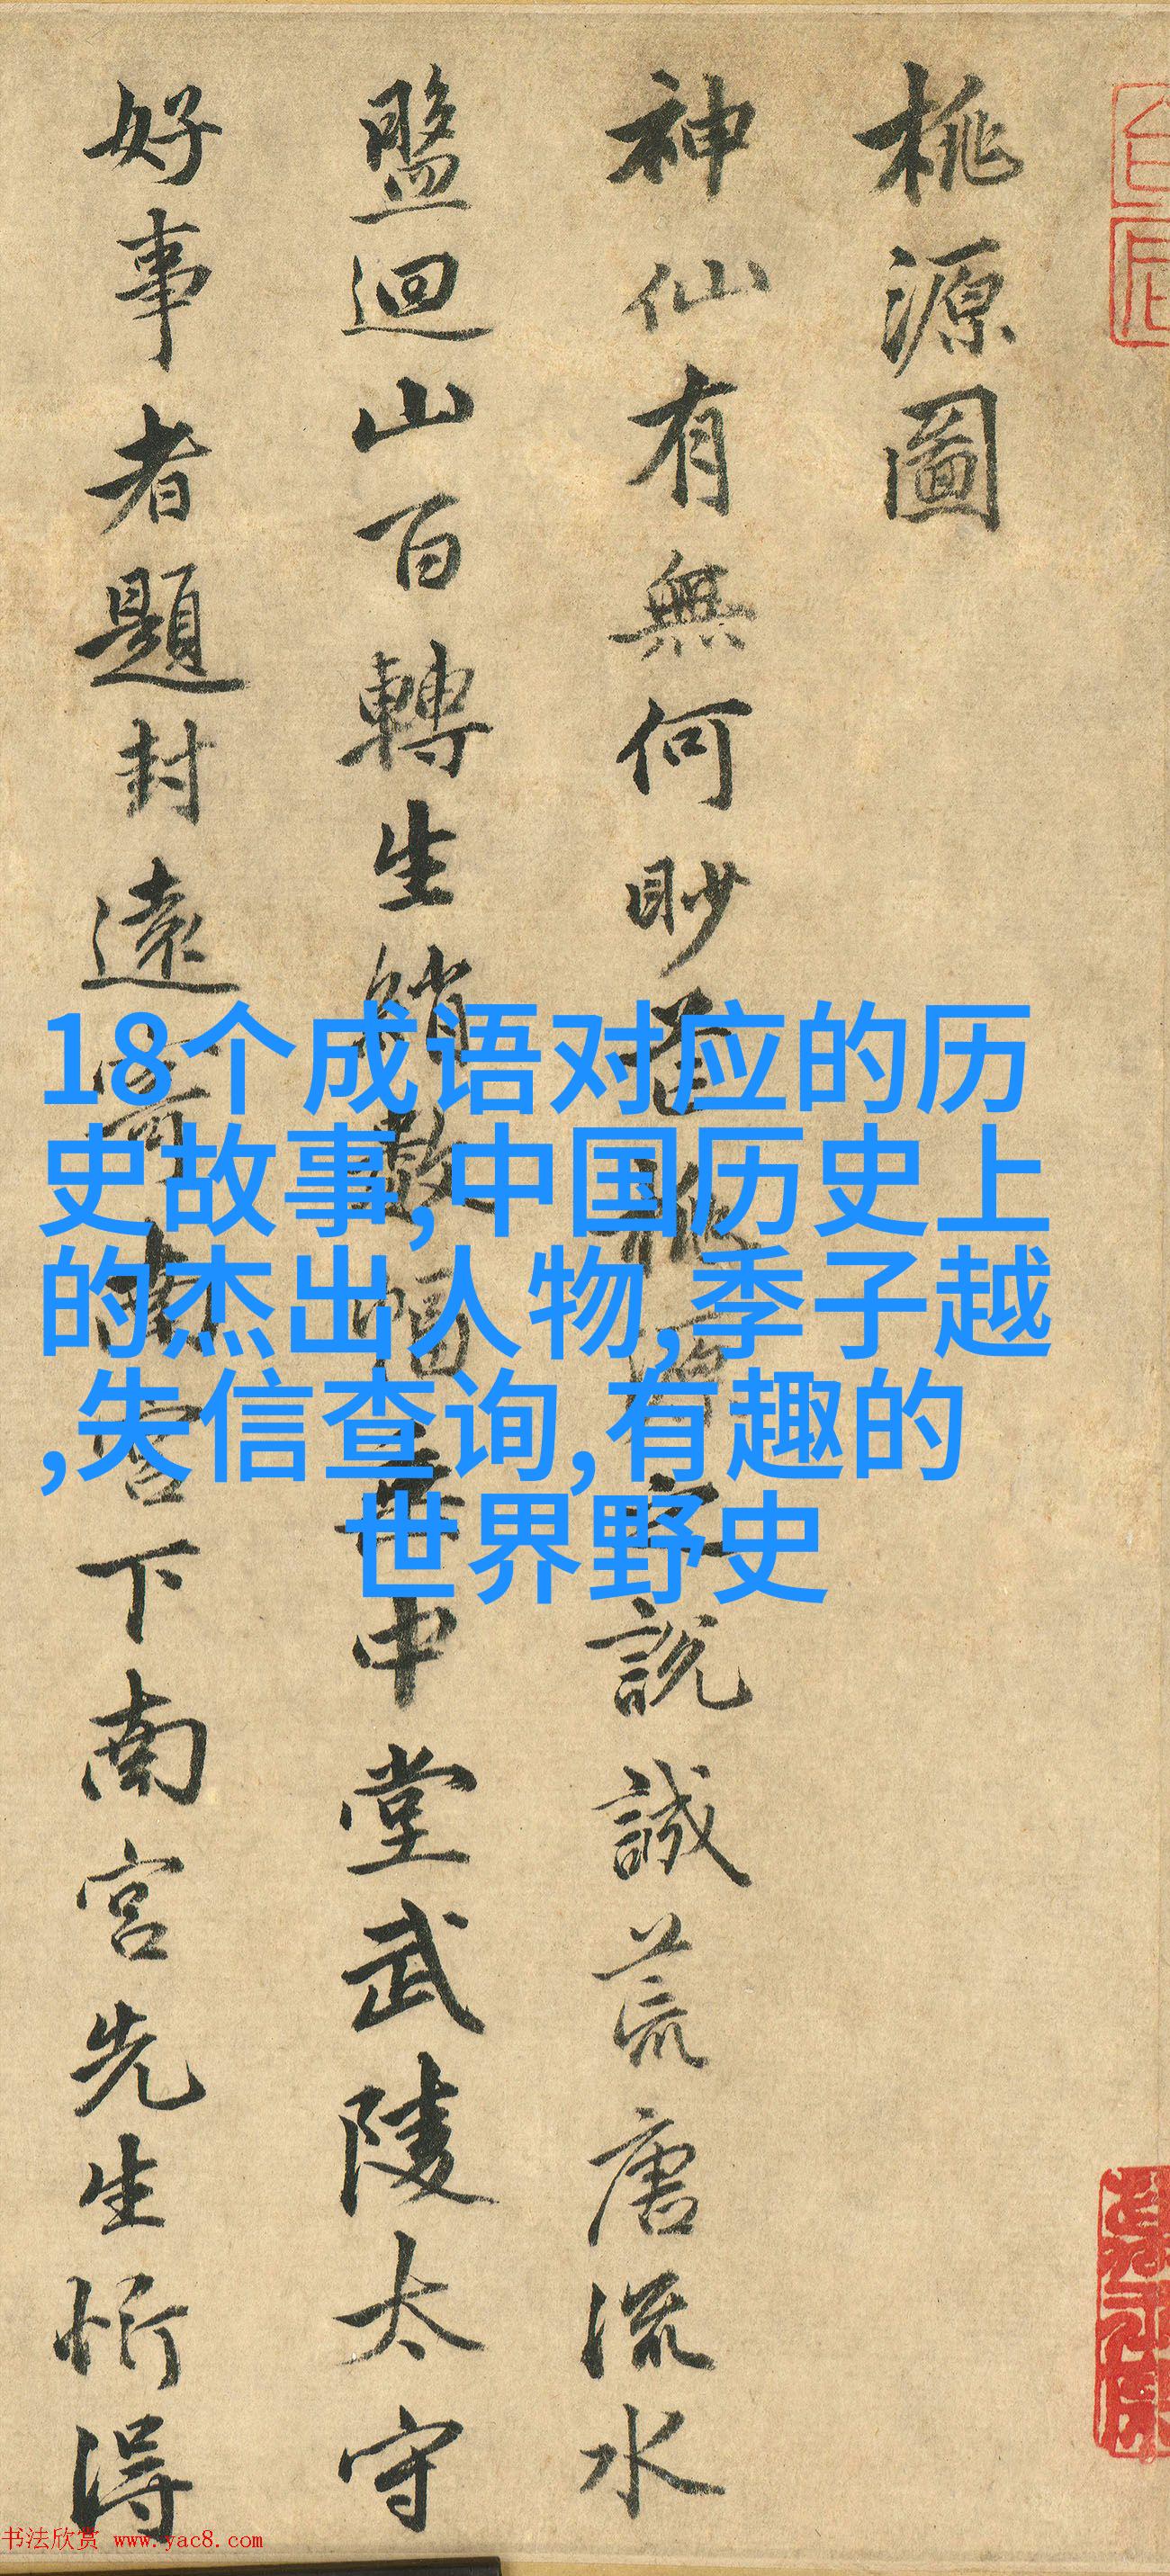 桃源圖
神仙有無何眇芒桃源之說誠荒唐流水
盤迴山百轉生綃數幅垂中堂武陵太守
好事者題封遠寄南宮下南宮先生忻得
18个成语对应的历
史故事,中国历史上
的杰出人物,季子越
,失信查询,有趣的
世界野史
书法欣赏 www.yac8.com